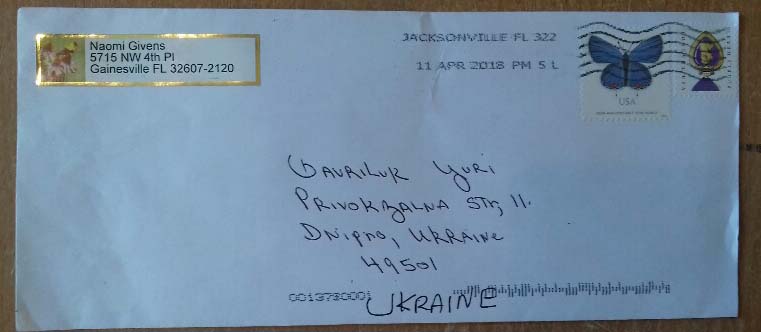 Naomi Givens
5715 NW 4th Pl
Gainesville FL 32607-2120
JACKSONVILLE FL 322
11 APR 2018 PM 5 L
USA
GAVRILUK YURI
PRIVOKZALNA STR, 11.
DNIPRO, UKRAINE
49501
0013730001
UKRAINE